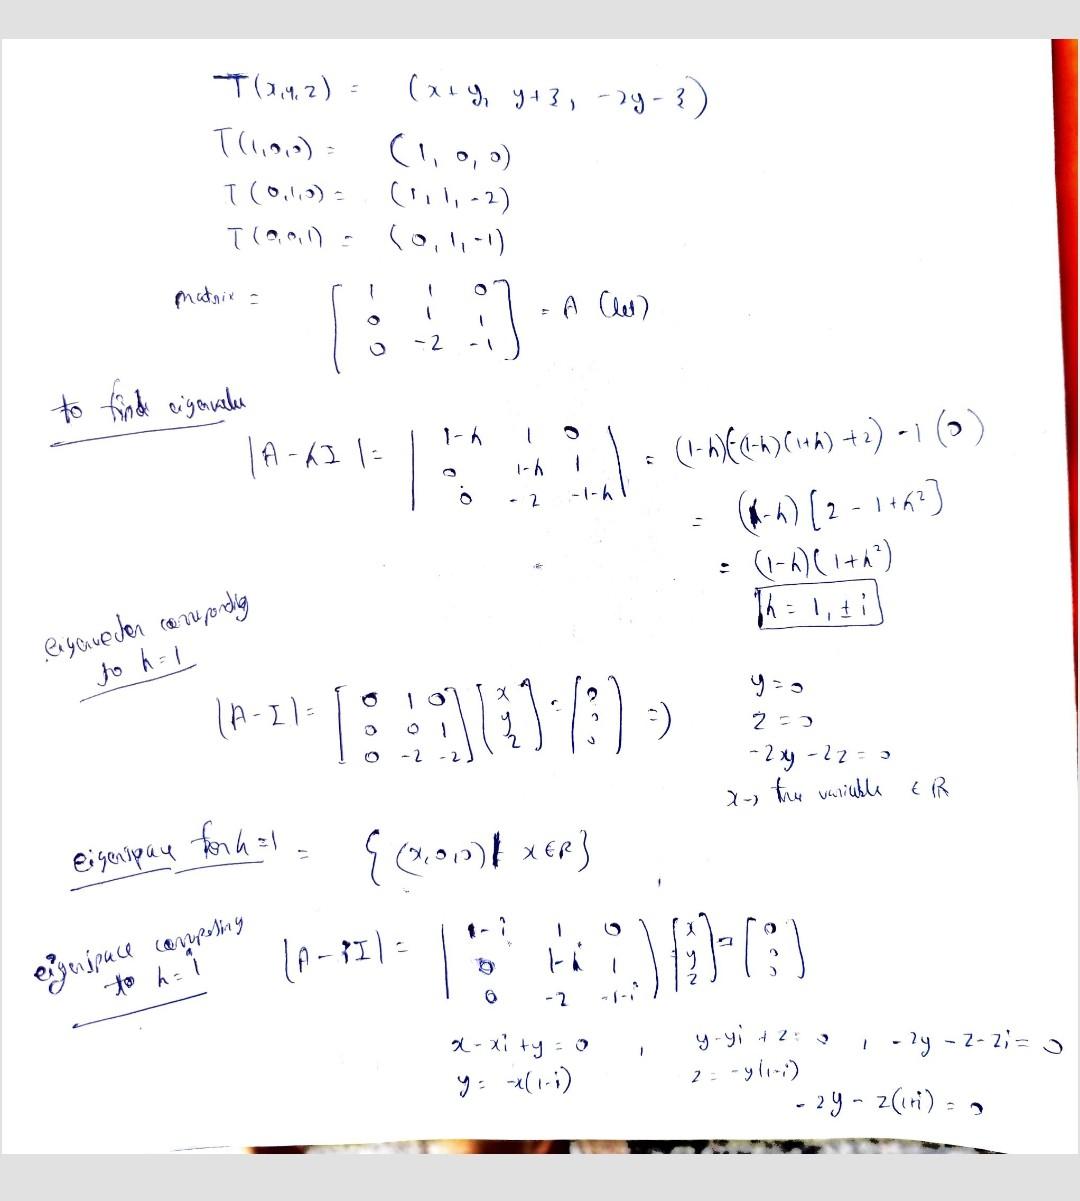 T(x,y,z) = (x+y, y+z, -2y-z)
T(1,0,0) = (1, 0, 0)
T(0,1,0) = (1, 1, -2)
T(0,0,1) = (0, 1, -1)
matrix = [1 1 0
0 1 1
0 -2 -1] = A (let)
to find eigenvalue
|A-λI| = |1-λ 1 0
0 1-λ 1
0 -2 -1-λ| = (1-λ)(-(1-λ)(1+λ)+2) -1(0)
= (1-λ)[2-1+λ²]
= (1-λ)(1+λ²)
λ = 1, ±i
eigenvector corresponding
to λ=1
|A-I| = [0 1 0
0 0 1
0 -2 -2] [x y z] = [0 0 0] =>
y=0
z=0
-2y-2z=0
x→ free variable ∈ R
eigenspace for λ=1 = {(x,0,0) | x∈R}
eigenspace corresponding
to λ=i
|A-iI| = |1-i 1 0
0 1-i 1
0 -2 -1-i| [x y z] = [0 0 0]
x-xi+y=0 , y-yi+z=0 , -2y-z-zi=0
y=-x(1-i) z=-y(1-i)
-2y-z(1+i)=0